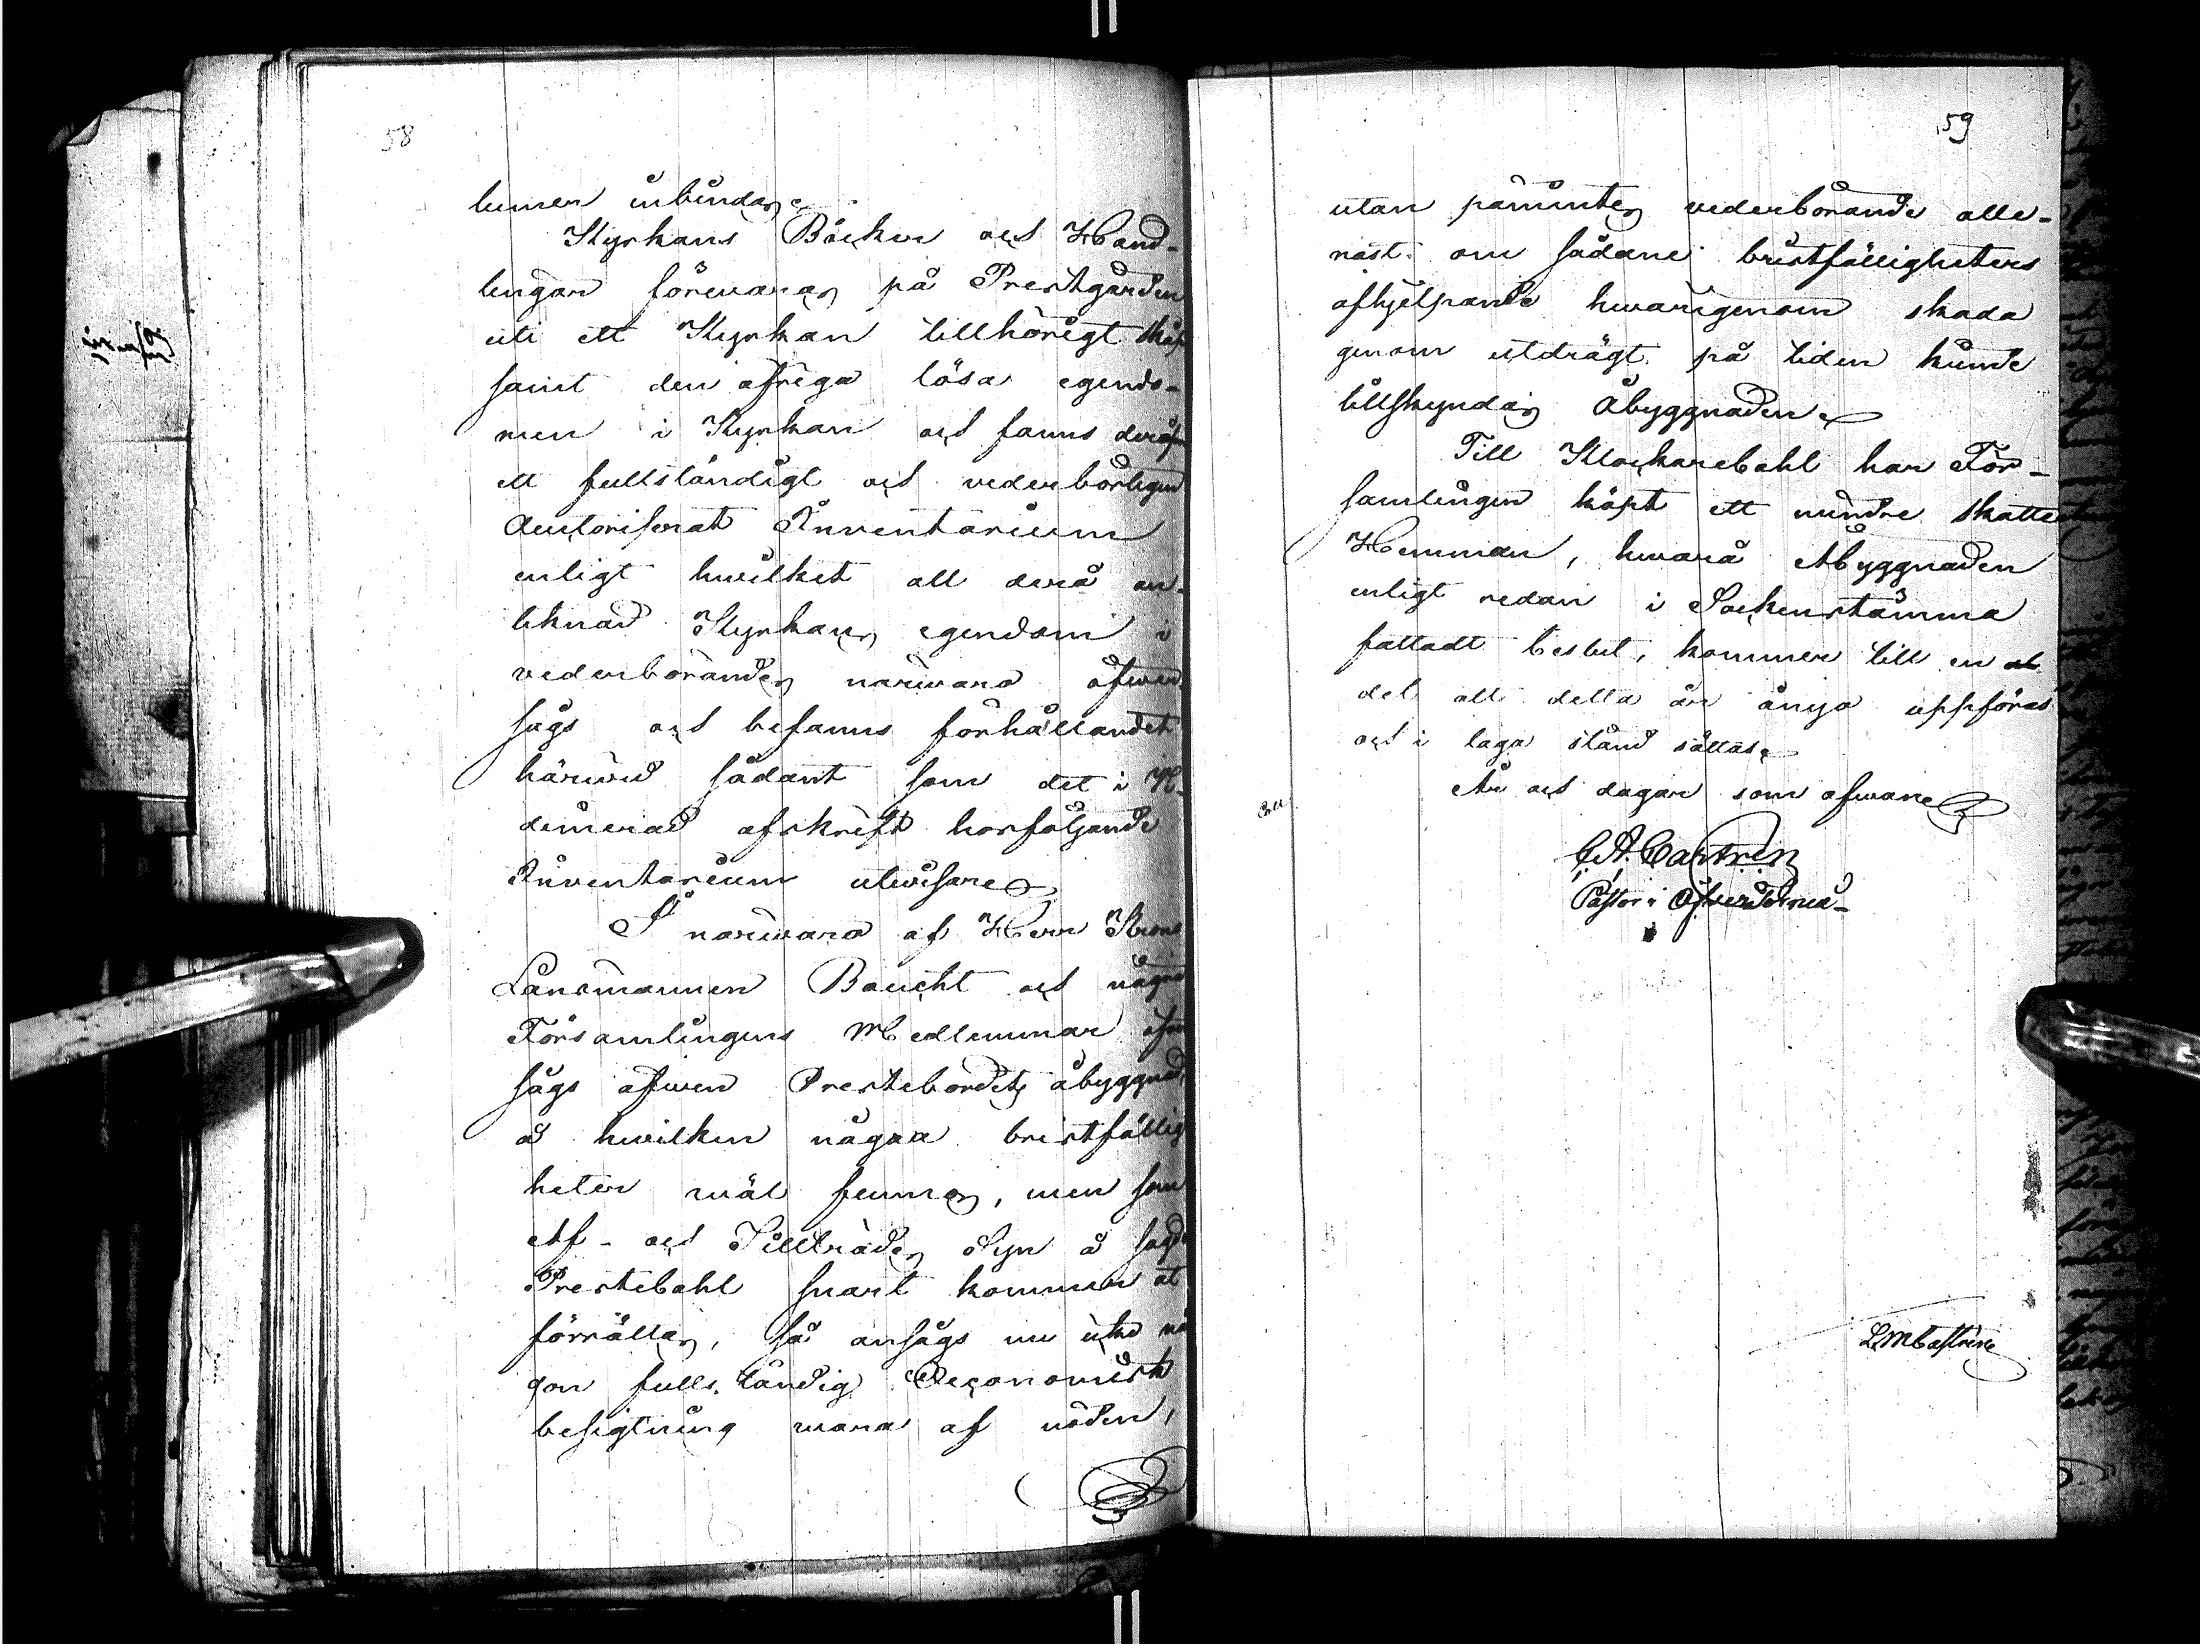 58
lumer inbindas.
Kyrkans Böcker och Hand-
lingar förvaras på Prestgården
uti ett Kyrkan tillhörigt skåp
samt den öfriga lösa egendo-
men i Kyrkan och fanns deröfver
ett fullständigt och vederbörligen
Autoriserat Inventarium
enligt hwilket all derå an-
teknad Kyrkans egendom i
vederbörandes närwaro öfwer
sågs och befanns förhållandet
härwid sådant som det i
dimerad afskrift härföljande
Inventarium utwisare
I närwaro af Herr Krono
Länsmannen Baucht och några
Församlingens Medlemmar öfwer
sågs äfwen Prestebordets åbyggnad,
å hwilken någaa bristfällig
heter wäl funnos, men som
Af- och Tillträdes Syn å sagde
Prestebohl snart kommer at
förrättas, så ansågs nu icke nå
gon fullständig Oeconomisk
besigtning wara af nöden,
59
utan påmintes vederbörande alle-
nast om sådane bristfälligheters
afhjelpande hwarigenom skada
genom utdrägt på tiden kunde
tillskyndas Åbyggnaden
Till Klockarebohl har För-
samlingen köpt ett mindre skatte
Hemman, hwarå Åbyggnaden
enligt redan i Sockenstämma
fattadt beslut, kommer till en
del att detta år ånyo uppföras
och i laga stånd sättas.
År och dagar som ofwan
Castrén
Pastor i Öfvertorneå
LMCastrén